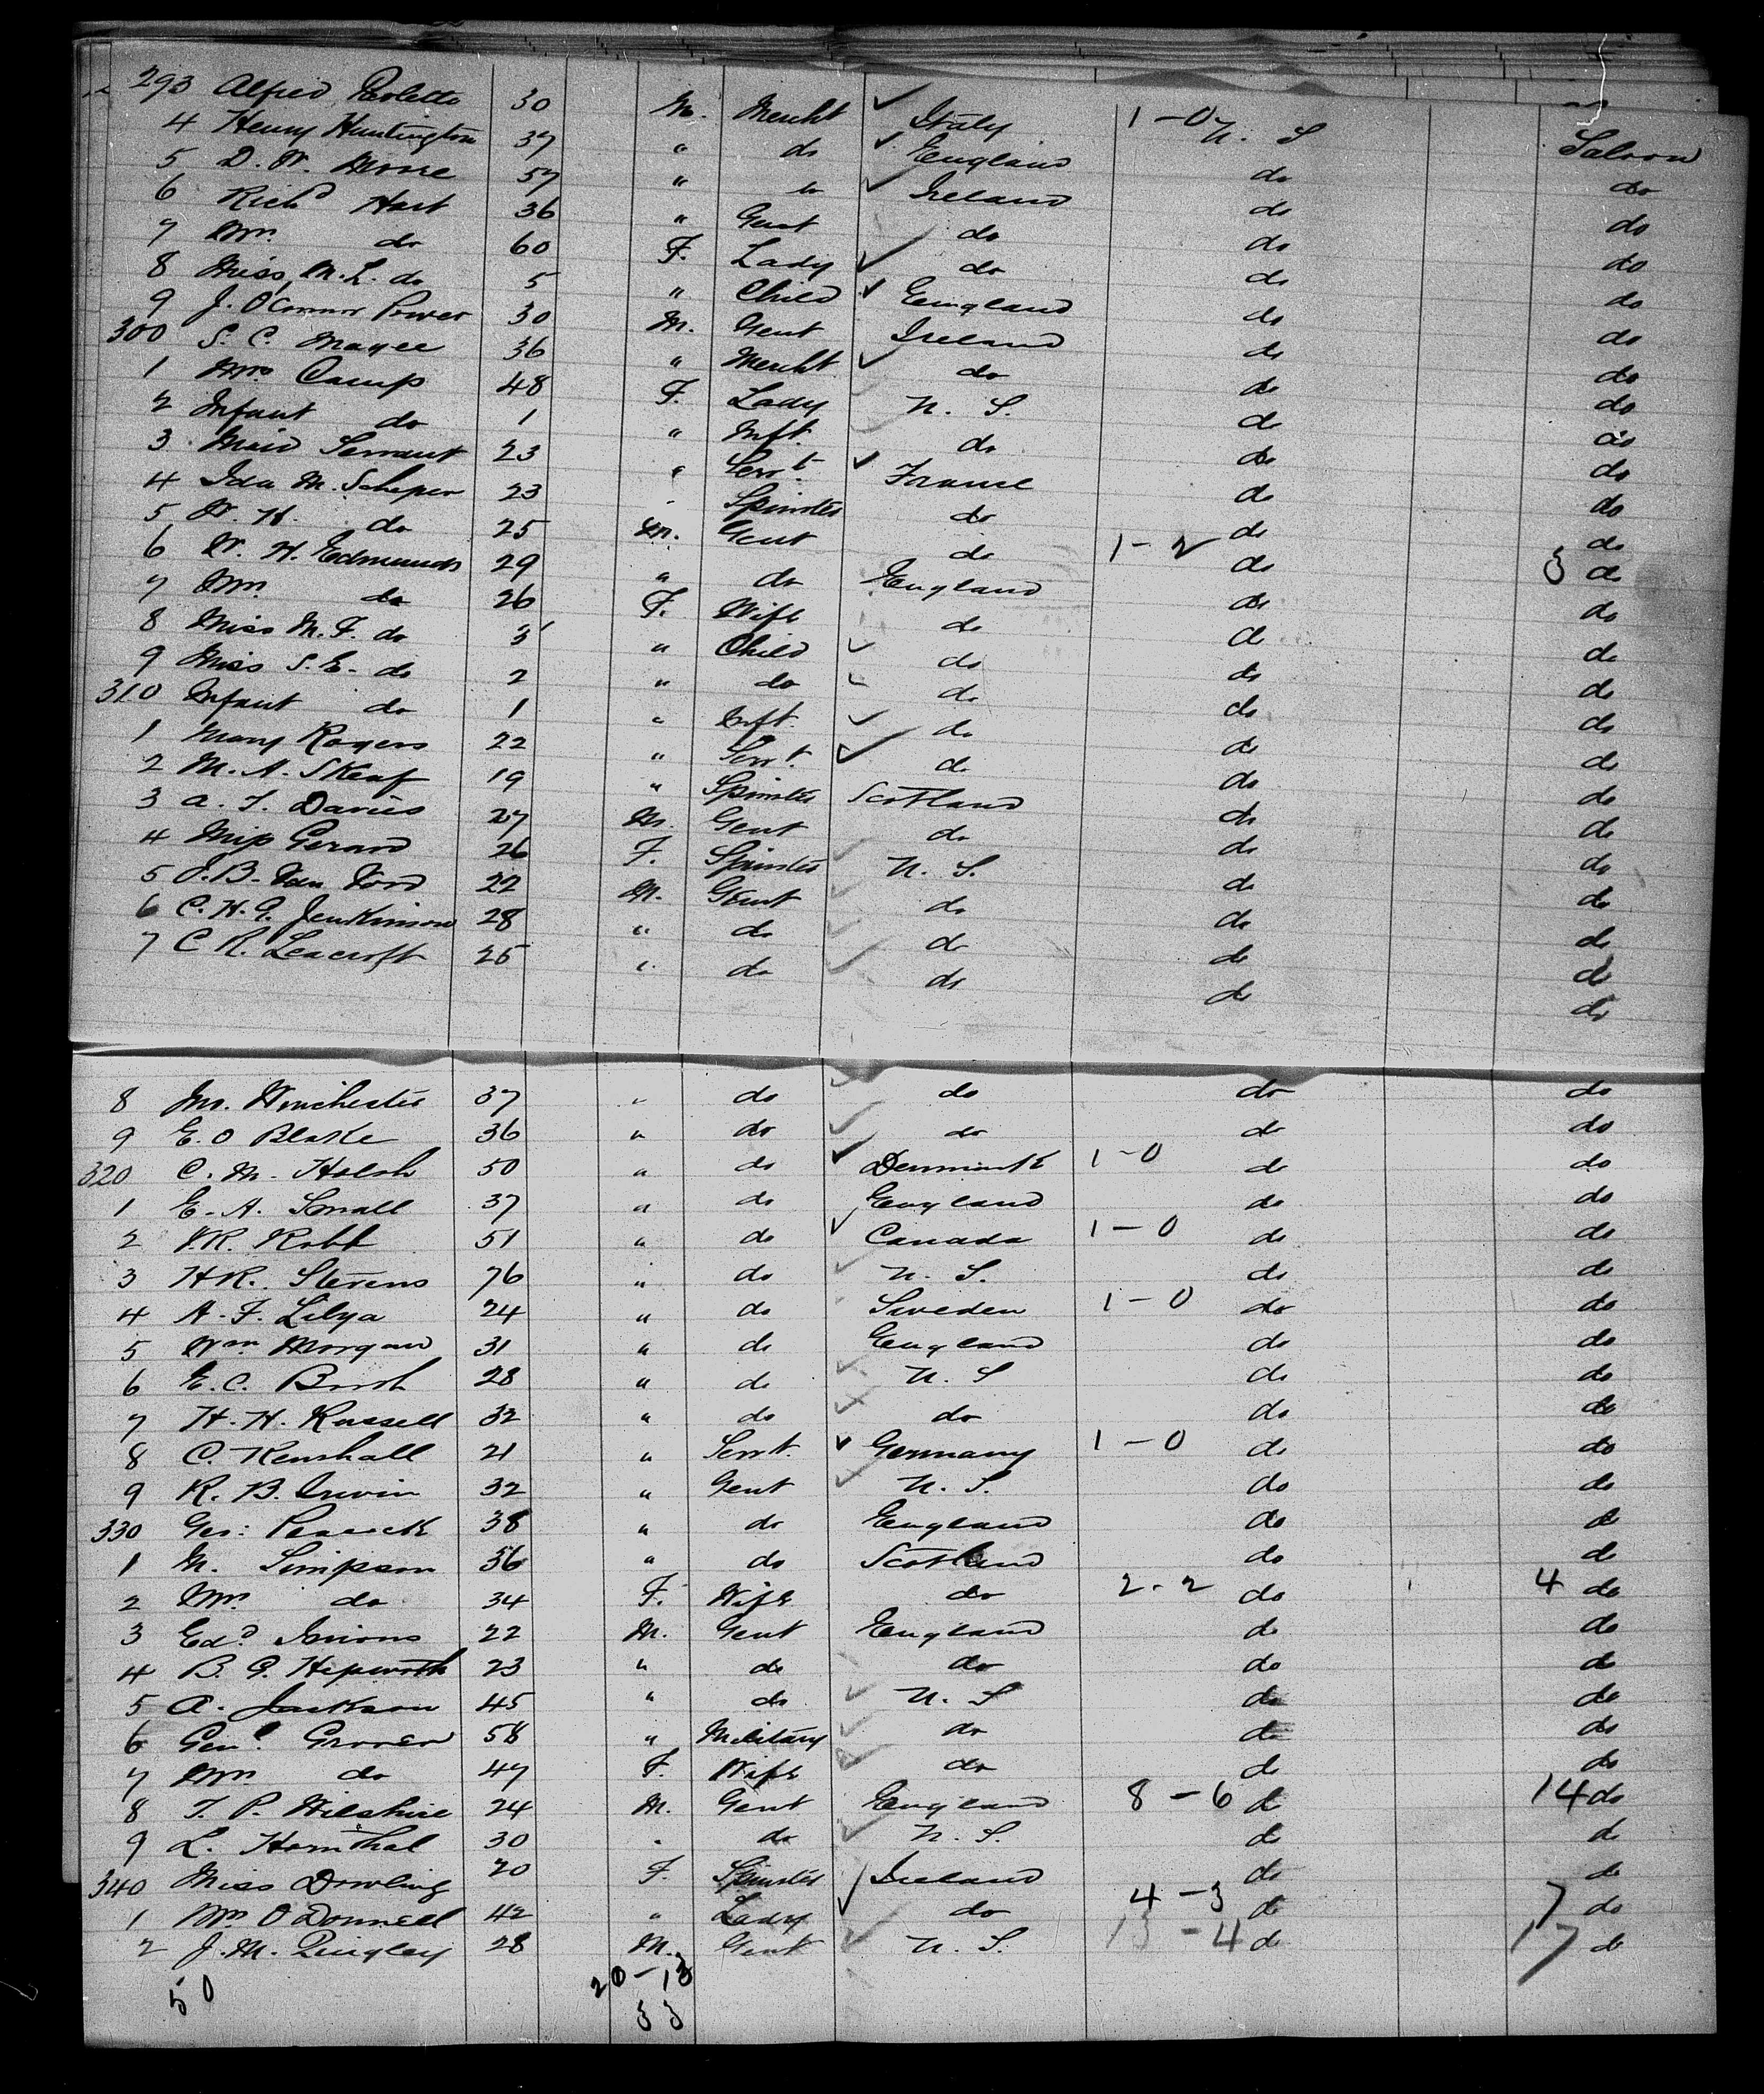 293 Alfred 30 M. Mercht Italy 1-0 U. S Saloon
4 Henry Huntington 37 " do England do do
5 D. W. Moore 57 " do Ireland do do
6 Richd Hart 36 " Gent do do do
7 Mrs. do 60 F. Lady do do do
8 Miss M. L. do 5 " Child England do do
9 J. O'Connor Power 30 M. Gent Ireland do do
300 S. C. Magee 36 " Mercht do do do
1 Mrs Camp 48 F. Lady U. S. do do
2 Infant do 1 " Inft. do do do
3 Maid Servant 23 " Servt. France do do
4 Ida M. Scheper 23 " Spinster do do do
5 W. H. do 25 M. Gent do 1-2 do do
6 W. H. Edmunds 29 " do England do 3 do
7 Mrs. do 26 F. Wife do do do
8 Miss M. F. do 3 " Child do do do
9 Miss S. E. do 2 " do do do do
310 Infant do 1 " Inft. do do do
1 Mary Rogers 22 " Servt. do do do
2 M. A. Skeaf 19 " Spinster Scotland do do
3 A. T. Davies 27 M. Gent do do do
4 Miss Gerard 26 F. Spinster U. S. do do
5 J. B. Van 22 M. Gent do do do
6 C. H. G. Jenkinson 28 " do do do do
7 C R. Leacroft 25 " do do do do
8 Mr. Winchester 37 " do do do do
9 E. O Blake 36 " do do do do
320 C. M. Holsh 50 " do Denmark 1-0 do do
1 E. A. Small 37 " do England do do
2 Robb 51 " do Canada 1-0 do do
3 H R. Stevens 76 " do U. S. do do
4 A. F. Lilya 24 " do Sweden 1-0 do do
5 Wm Morgan 31 " do England do do
6 E. C. 28 " do U. S do do
7 H. H. Russell 32 " do do do do
8 C. Kenshall 21 " Servt. Germany 1-0 do do
9 R. B. Irwin 32 " Gent U. S. do do
330 Geo: Peacock 38 " do England do do
1 M. Simpson 36 " do Scotland do do
2 Mrs. do 34 F. Wife do 2-2 do 4 do
3 Edd. 22 M. Gent England do do
4 B. G. Hepworth 23 " do do do do
5 A. Jackson 45 " do U. S do do
6 Genl. Grover 58 " Military do do do
7 Mrs. do 47 F. Wife do do do
8 T. P. Wilshire 24 M. Gent England 8-6 do 14 do
9 L. Hornthal 30 " do U. S. do do
340 Miss Dowling 20 F. Spinster Ireland do do
1 Mrs O'Donnell 42 " Lady do 4-3 do 7 do
2 J. M. Quigley 28 M. Gent U. S. 13-4 do 17 do
50 20-13
33